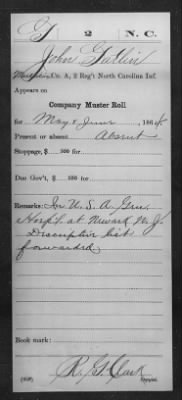 G 2 N. C.
John Gatlin
Co. A, 2 Reg't North Carolina Inf.
Appears on
Company Muster Roll
for May & June, 1864
Present or absent Absent
Stoppage, $ 100 for
Due Gov't, $ 100 for
Remarks: In U. S. A. Gen.
Hosp. at Newark N. J.
Discriptive list
forwarded
Book mark:
R. G. Clark
(358) Copyist.